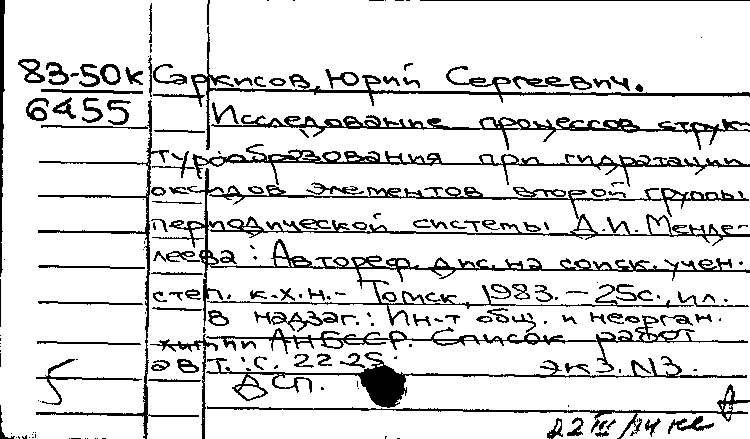 83-50к Саркисов, Юрий Сергеевич.
6455 Исследование процессов струк-
турообразования при гидратации
оксидов элементов второй группы
периодической системы Д.И. Менде-
леева: Автореф. дис. на соиск. учен.
степ. к.х.н. - Томск, 1983. - 25с., ил.
В надзаг.: Ин-т общ. и неорган.
химии АН БССР. Список работ
авт.: с. 22-25.  экз. N3.
ДСП.
22 III/84